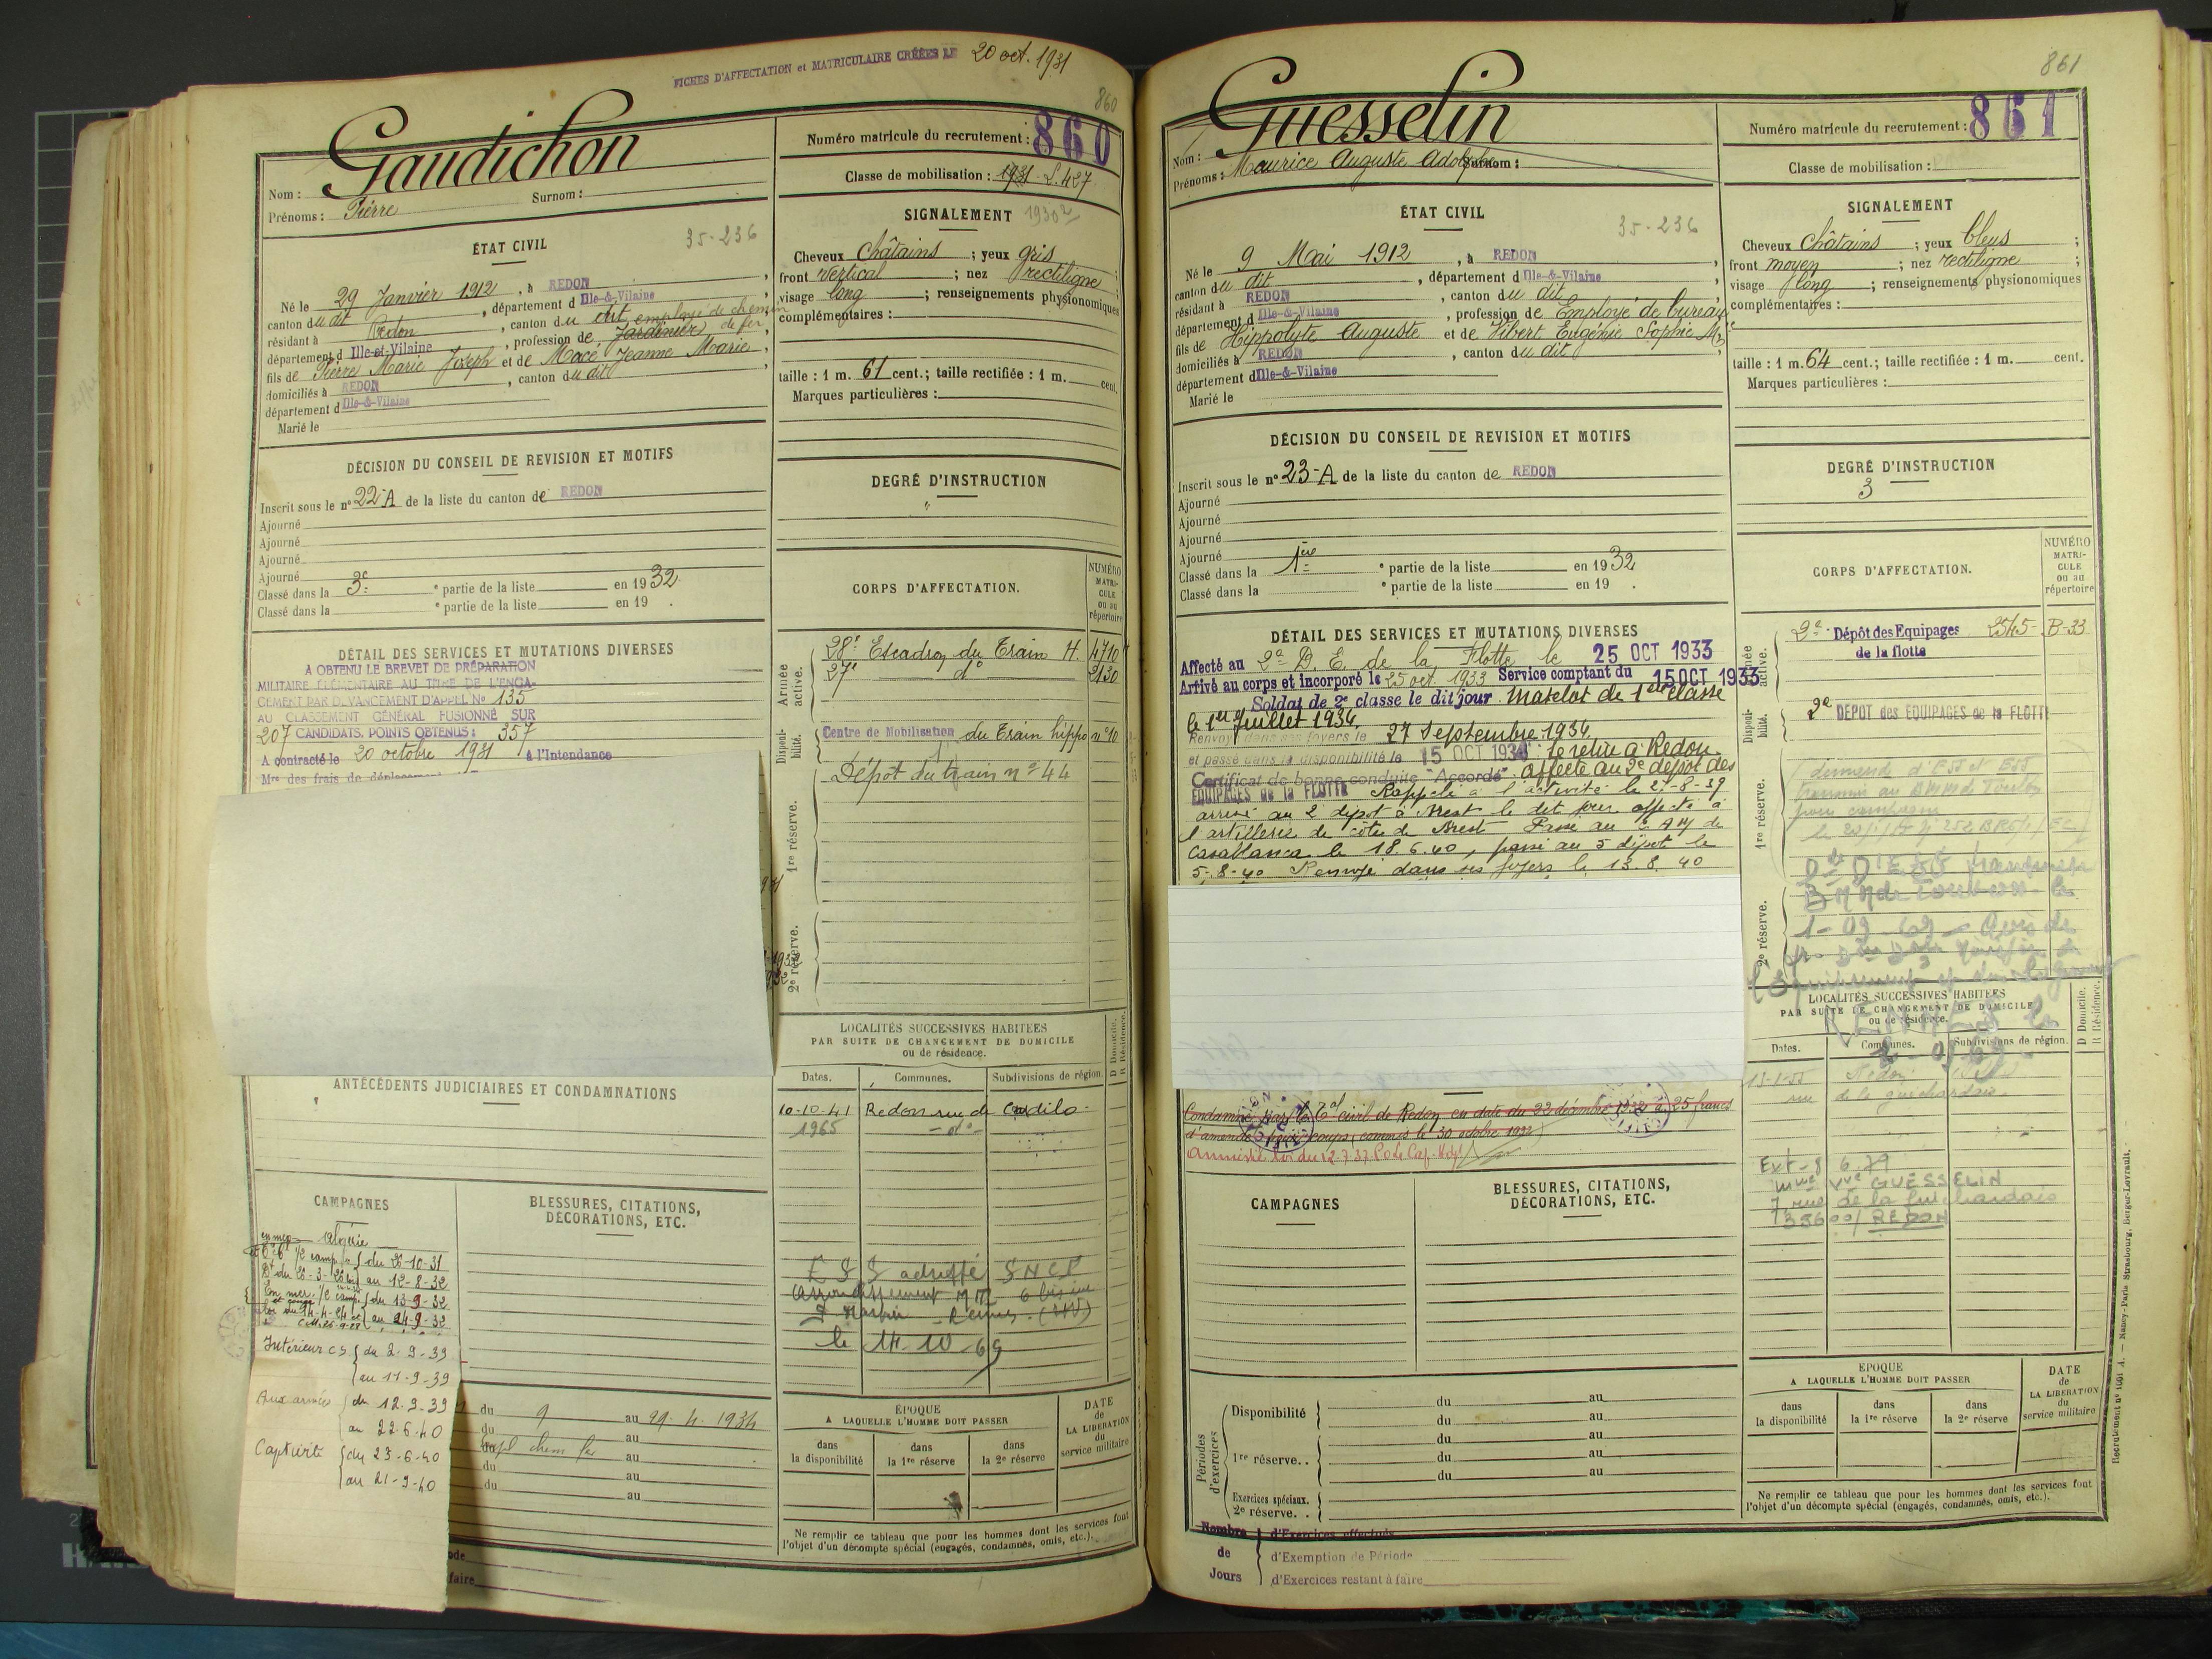 FICHES D'AFFECTATION et MATRICULAIRE CRÉÉES LE 20 oct. 1931
860
Gaudichon
Nom :
Surnom :
Prénoms : Pierre
ÉTAT CIVIL
35-236
Né le 29 Janvier 1912, à REDON,
canton du dit, département d Ille-&-Vilaine
résidant à Redon, canton du dit employé de chemin de fer
département d Ille-et-Vilaine, profession de Jardinier,
fils de Pierre Marie Joseph et de Macé Jeanne Marie,
domiciliés à REDON, canton du dit,
département d Ille-&-Vilaine
Marié le
DÉCISION DU CONSEIL DE REVISION ET MOTIFS
Inscrit sous le n° 22-A de la liste du canton de REDON
Ajourné
Ajourné
Ajourné
Ajourné
Classé dans la 3e ° partie de la liste en 1932
Classé dans la ° partie de la liste en 19 .
DÉTAIL DES SERVICES ET MUTATIONS DIVERSES
A OBTENU LE BREVET DE PRÉPARATION
MILITAIRE ÉLÉMENTAIRE AU TITRE DE L'ENGA-
GEMENT PAR DEVANCEMENT D'APPEL No 135
AU CLASSEMENT GÉNÉRAL FUSIONNÉ SUR
207 CANDIDATS. POINTS OBTENUS : 357
A contracté le 20 octobre 1931 à l'Intendance
Mre des frais de déplacement
ANTÉCÉDENTS JUDICIAIRES ET CONDAMNATIONS
CAMPAGNES
en mer Algérie
1/2 camp du 26-10-31
au 12-8-32
En mer 1/2 camp. du 13-9-32
au 24-9-32
Intérieur CS du 2-9-39
au 11-9-39
Aux armées du 12-9-39
au 22-6-40
Captivité du 23-6-40
au 21-9-40
BLESSURES, CITATIONS,
DÉCORATIONS, ETC.
du 9 au 29-4-1934
du au
du au
du au
du au
faire
Numéro matricule du recrutement : 860
Classe de mobilisation : 1931 - L.427
SIGNALEMENT 1930
Cheveux châtains ; yeux gris
front vertical ; nez rectiligne ;
visage long ; renseignements physionomiques
complémentaires :
taille : 1 m. 61 cent. ; taille rectifiée : 1 m. cent.
Marques particulières :
DEGRÉ D'INSTRUCTION
"
CORPS D'AFFECTATION.
NUMÉRO MATRI- CULE ou au répertoire
Armée active.
28e Escadron du Train H. 4710
27e do 2130
Disponi- bilité.
Centre de Mobilisation du Train hippo n° 10
1re réserve.
Dépôt du train n° 44
2e réserve.
LOCALITÉS SUCCESSIVES HABITÉES
PAR SUITE DE CHANGEMENT DE DOMICILE
ou de résidence.
D Domicile.
R Résidence.
Dates. Communes. Subdivisions de région.
10-10-41 Redon rue de
1965 - do -
E S S adressé SNCF
Arrondissement
Rennes
le 14-10-69
ÉPOQUE
A LAQUELLE L'HOMME DOIT PASSER
dans la disponibilité
dans la 1re réserve
dans la 2e réserve
DATE de LA LIBÉRATION du service militaire
Ne remplir ce tableau que pour les hommes dont les services font
l'objet d'un décompte spécial (engagés, condamnés, omis, etc.).
861
Guesselin
Nom :
Surnom :
Prénoms : Maurice Auguste Adolphe
ÉTAT CIVIL
35-236
Né le 9 Mai 1912, à REDON,
canton du dit, département d Ille-&-Vilaine
résidant à REDON, canton du dit
département d Ille-&-Vilaine, profession de Employé de bureau
fils de Hippolyte Auguste et de Hibert Eugénie Sophie Mie
domiciliés à REDON, canton du dit
département d Ille-&-Vilaine
Marié le
DÉCISION DU CONSEIL DE REVISION ET MOTIFS
Inscrit sous le n° 23-A de la liste du canton de REDON
Ajourné
Ajourné
Ajourné
Ajourné
Classé dans la 1ère ° partie de la liste en 1932
Classé dans la ° partie de la liste en 19 .
DÉTAIL DES SERVICES ET MUTATIONS DIVERSES
Affecté au 2e D. E. de la Flotte le 25 OCT 1933
Arrivé au corps et incorporé le 25 oct. 1933 Service comptant du 15 OCT 1933
Soldat de 2e classe le dit jour. Matelot de 1ère classe
le 1er Juillet 1934
Renvoyé dans ses foyers le 27 Septembre 1934
et passé dans la disponibilité le 15 OCT 1934 Se retire à Redon.
Certificat de bonne conduite "Accordé". affecté au 2e dépôt des
EQUIPAGES de la FLOTTE Rappelé à l'activité le 27-8-39
arrivé au 2 dépôt à Brest le dit jour affecté à
l'artillerie de côte de Brest Passé au
Casablanca le 18.6.40, passé au 5 dépôt le
5-8-40 Renvoyé dans ses foyers le 13.8.40
Condamné par le Tal civil de Redon en date du 22 décembre 1932 à 25 francs
d'amende coups (commis le 30 octobre 1932)
Amnistié loi du 12.7.37
CAMPAGNES
BLESSURES, CITATIONS,
DÉCORATIONS, ETC.
Périodes d'exercices
Disponibilité du au
du au
1re réserve.. du au
du au
du au
Exercices spéciaux.
2e réserve. .
Nombre de Jours
d'Exercices effectués
d'Exemption de Période
d'Exercices restant à faire
Numéro matricule du recrutement : 861
Classe de mobilisation :
SIGNALEMENT
Cheveux châtains ; yeux bleus ;
front moyen ; nez rectiligne ;
visage long ; renseignements physionomiques
complémentaires :
taille : 1 m. 64 cent. ; taille rectifiée : 1 m. cent.
Marques particulières :
DEGRÉ D'INSTRUCTION
3
CORPS D'AFFECTATION.
NUMÉRO MATRI- CULE ou au répertoire
Armée active.
2e Dépôt des Equipages 2545- B-33
de la flotte
Disponi- bilité.
2e DEPOT des EQUIPAGES de la FLOTTE
1re réserve.
2e réserve.
1-09-69
LOCALITÉS SUCCESSIVES HABITÉES
PAR SUITE DE CHANGEMENT DE DOMICILE
ou de résidence.
D Domicile.
R Résidence.
RENNES le
Dates. Communes. Subdivisions de région.
Redon
rue de la guichardais
Ext-8 6.79
Mme Vve GUESSELIN
7 rue de la Guichardais
35600 / REDON
ÉPOQUE
A LAQUELLE L'HOMME DOIT PASSER
dans la disponibilité
dans la 1re réserve
dans la 2e réserve
DATE de LA LIBÉRATION du service militaire
Ne remplir ce tableau que pour les hommes dont les services font
l'objet d'un décompte spécial (engagés, condamnés, omis, etc.).
Nancy-Paris-Strasbourg, Berger-Levrault.